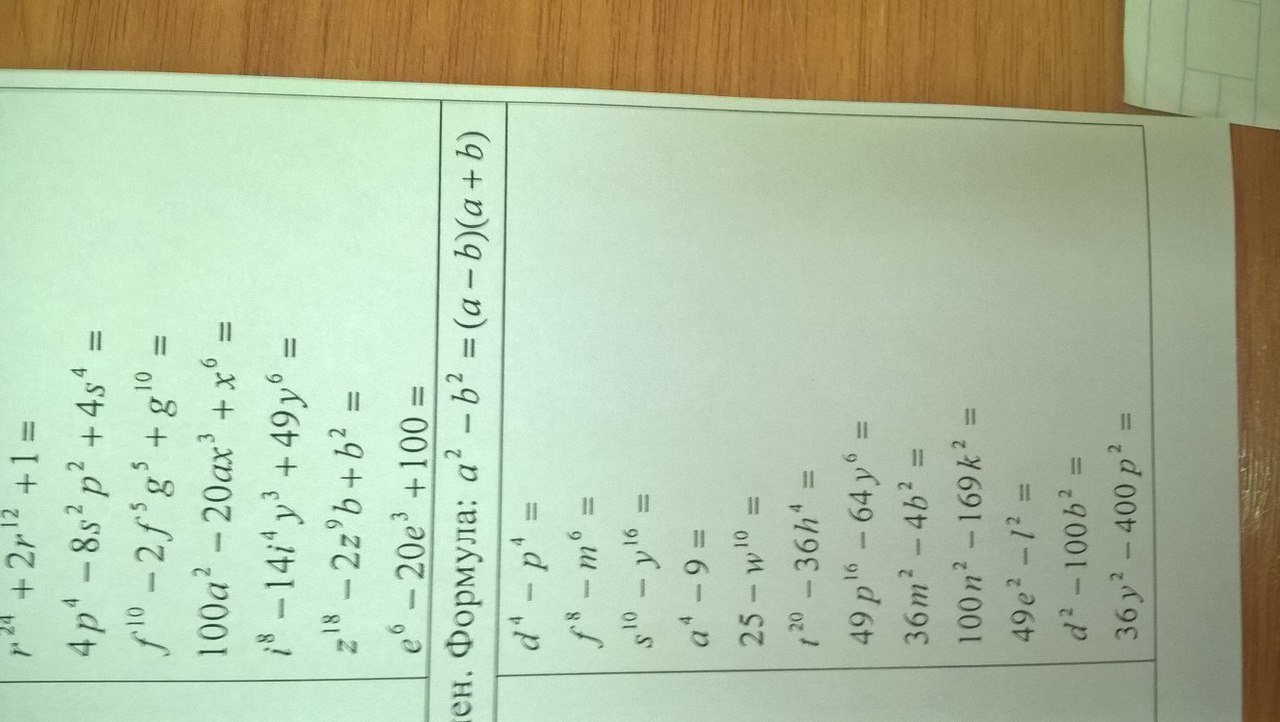 r²⁴ + 2r¹² + 1 =
4p⁴ − 8s²p² + 4s⁴ =
f¹⁰ − 2f⁵g⁵ + g¹⁰ =
100a² − 20ax³ + x⁶ =
i⁸ − 14i⁴y³ + 49y⁶ =
z¹⁸ − 2z⁹b + b² =
e⁶ − 20e³ + 100 =
Формула: a² − b² = (a − b)(a + b)
d⁴ − p⁴ =
f⁸ − m⁶ =
s¹⁰ − y¹⁶ =
a⁴ − 9 =
25 − w¹⁰ =
t²⁰ − 36h⁴ =
49p¹⁶ − 64y⁶ =
36m² − 4b² =
100n² − 169k² =
49e² − l² =
d² − 100b² =
36y² − 400p² =